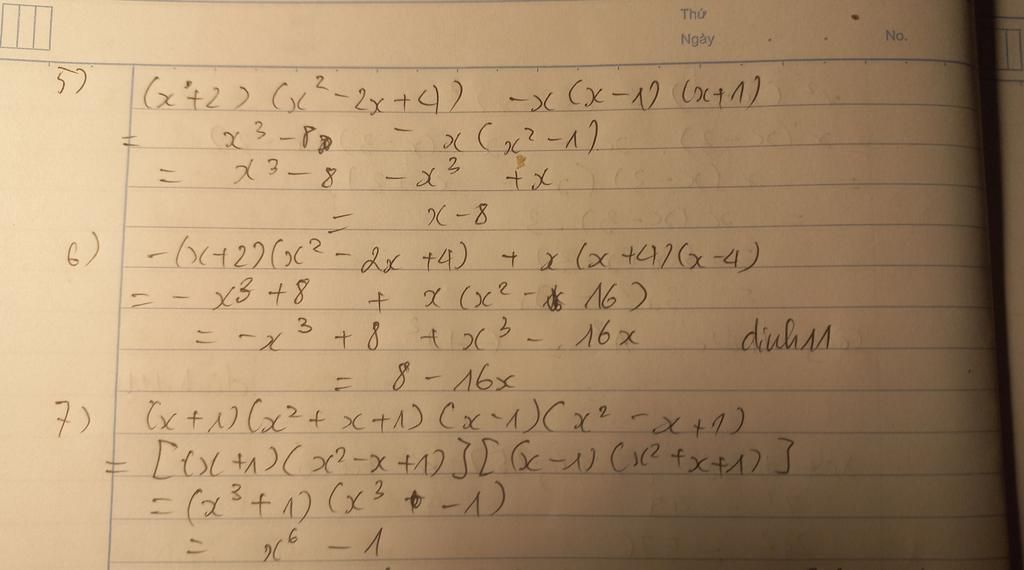 Thứ
Ngày . . No.
5) (x+2) (x² - 2x + 4) - x (x - 1) (x + 1)
= x³ - 8 - x (x² - 1)
= x³ - 8 - x³ + x
= x - 8
6) - (x+2) (x² - 2x + 4) + x (x+4) (x-4)
= - x³ + 8 + x (x² - 16)
= - x³ + 8 + x³ - 16x dinh11
= 8 - 16x
7) (x+1) (x² + x + 1) (x-1) (x² - x + 1)
= [(x+1) (x² - x + 1)] [(x-1) (x² + x + 1)]
= (x³ + 1) (x³ - 1)
= x⁶ - 1